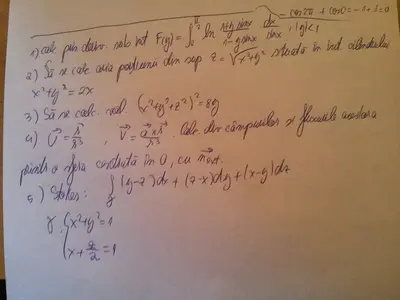 - cos 2π + cos 0 = -1+1=0
1) calc prin deriv. sub int F(y) = ∫₀^{π/2} ln (1+y sinx)/(1-y sinx) dx/sinx, |y|<1
2) Să se calc aria porțiunii din sup z = √(x²+y²) situată în int cilindrului
x²+y² = 2x
3) Să se calc. vol (x²+y²+z²)² = 8y
4) U⃗ = r⃗/r³, V⃗ = (a⃗×r⃗)/r³. Calc. div câmpurilor și fluxurile acestora
printr-o sfera centrată în 0, cu n⃗ext.
5) Stokes: ∫γ (y-z)dx + (z-x)dy + (x-y)dz
γ: { x²+y²=1
x+z/2=1